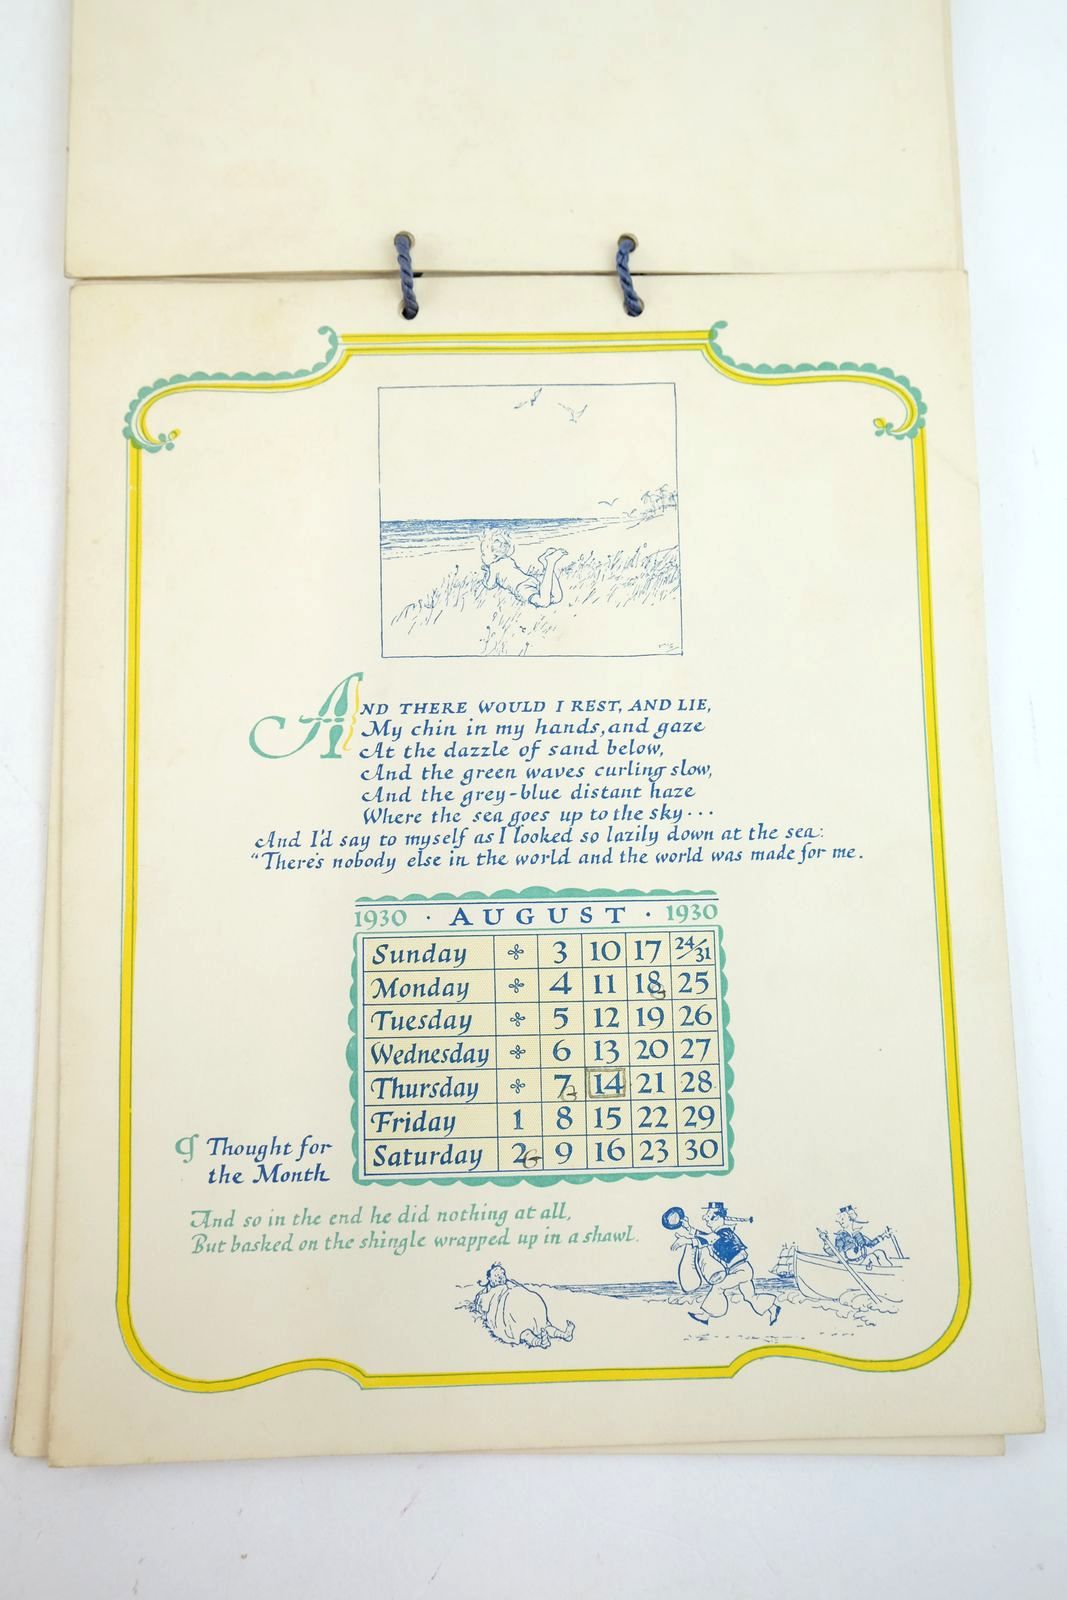 AND THERE WOULD I REST, AND LIE,
My chin in my hands, and gaze
At the dazzle of sand below,
And the green waves curling slow,
And the grey-blue distant haze
Where the sea goes up to the sky...
And I'd say to myself as I looked so lazily down at the sea:
"There's nobody else in the world and the world was made for me.
1930 · AUGUST · 1930
Sunday 3 10 17 24/31
Monday 4 11 18 25
Tuesday 5 12 19 26
Wednesday 6 13 20 27
Thursday 7 14 21 28
Friday 1 8 15 22 29
Saturday 2 9 16 23 30
Thought for
the Month
And so in the end he did nothing at all,
But basked on the shingle wrapped up in a shawl.